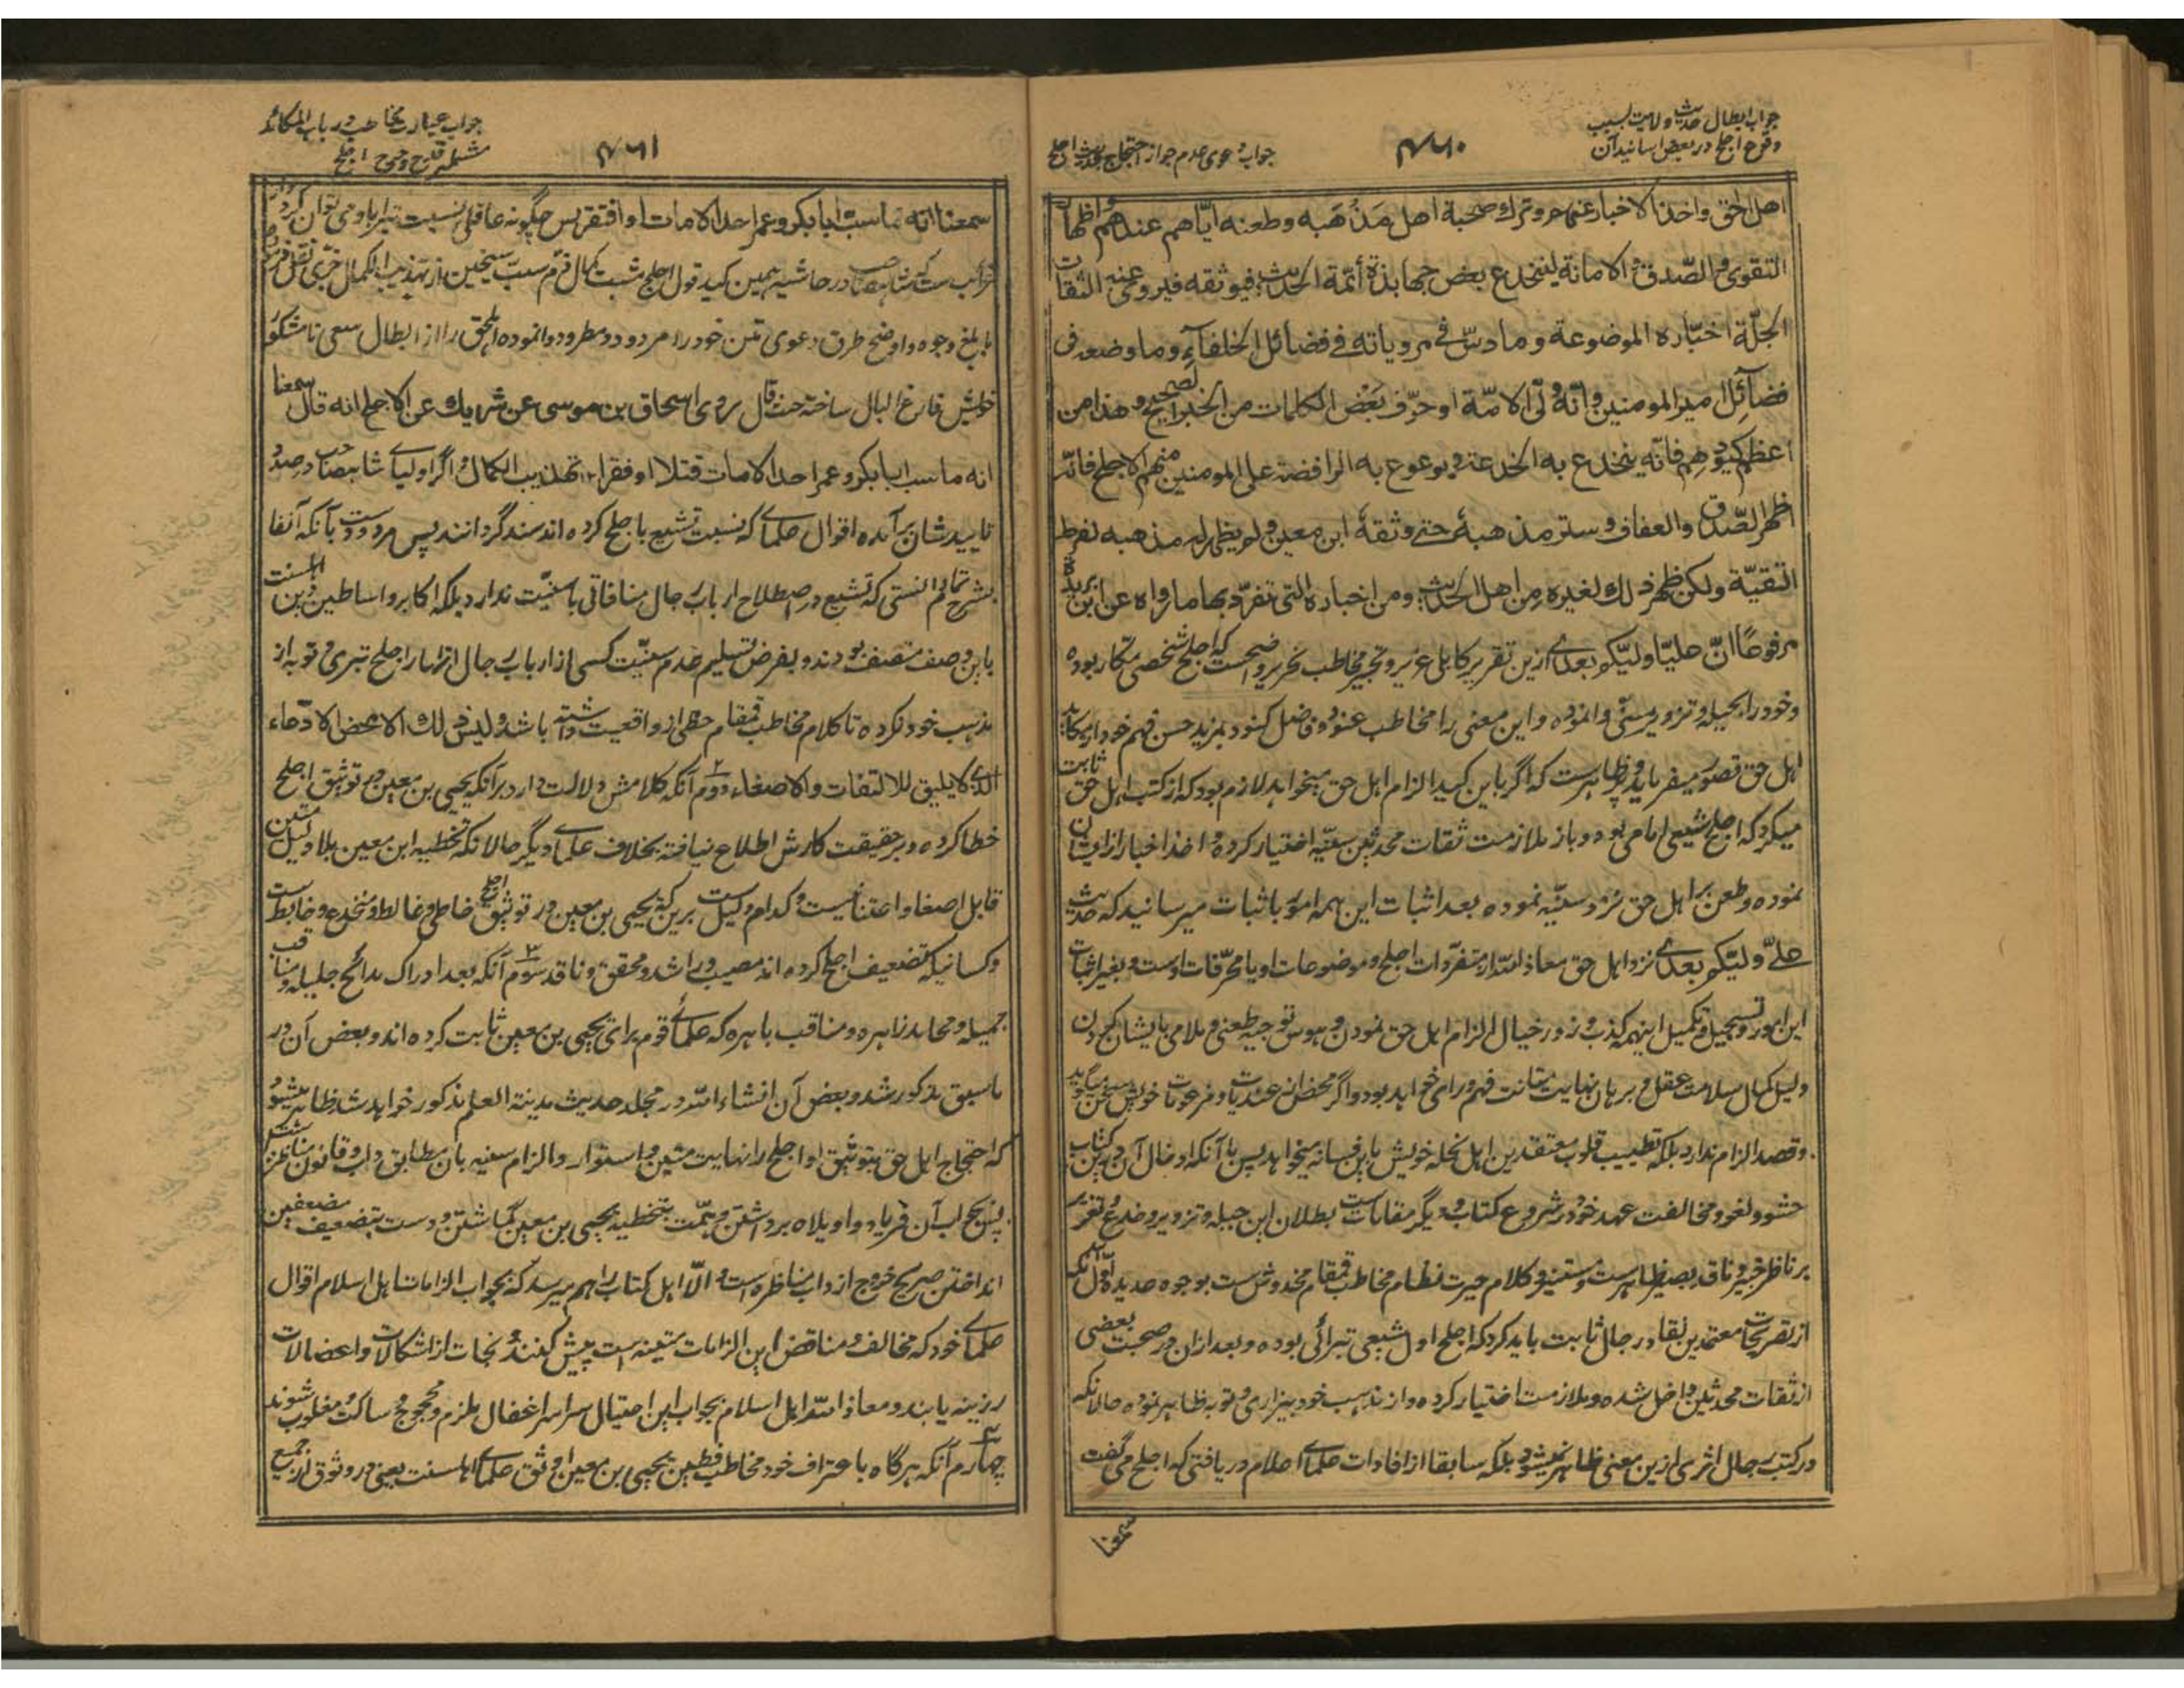 جواب ابطال حدیث ولایت بسبب
وقوع اجلح در بعض اسانید آن
۴۶۰
جواب دعوی عدم جواز احتجاج بحدیث اجلح
اهل الحق واخذ الاخبار عنهم وترك صحبة اهل مَذْهَبه وطعنه ایّاهم عندهم واظهار
التقوی والصّدق والامانة لینخدع بعض جهابذة أئمّة الحدیث فیوثقه فیروی عنه الثقات
الجلّة اخباره الموضوعة وما دسّ فی مرویاته فی فضائل الخلفآء وما وضعه فی
فضآئل امیر المومنین وانّه ولّی الامّة او حرّف بعض الکلمات من الخبر الصحیح وهذا من
اعظم کیودهم فانّه ینخدع به الخدعة ویوعوع به الرافضة علی المومنین منهم الاجلح فانّه
اظهر الصّدق والعفاف وستر مذهبه حتی وثقهٔ ابن معین ولم یظهر له مذهبه لفرط
التقیّة ولکن ظهر ذلك لغیره من اهل الحدیث ومن اخباره التی تفرّد بها ما رواه عن ابن بریدة
مرفوعًا انّ علیّا ولیّکم بعدی ازین تقریر کابلی عزیر و تحبیر مخاطب نحریر واضحست که اجلح شخصی مکّار بوده
وخود را بحیله وتزویر سنّی وانموده واین معنی را مخاطب عنوّه فاضل کنود بمزید حسن فهم خود از مکاید
اهل حق تصور میفرماید و پر ظاهرست که اگر باین کید الزام اهل حق میخواهد لازم بود که از کتب اهل حق ثابت
میکرد که اجلح شیعی امامی بوده و باز ملازمت ثقات محدثین سنّیه اختیار کرده و اخذ اخبار از ایشان
نموده و طعن بر اهل حق نزد سنّیه نموده بعد اثبات این همه امور باثبات میرسانید که حدیث
علیّ ولیّکم بعدی نزد اهل حق معاذ الله از متفرّدات اجلح و موضوعات او یا محرّفات اوست و بغیر اثبات
این امور و تسجیل و تکمیل اینهمه کذب و زور خیال الزام اهل حق نمودن و هوس توجیه طعنی و ملامی بایشان کردن
دلیل کمال سلامت عقل و برهان نهایت متانت فهم و رای خواهد بود و اگر محض از عندیات و مزعومات خویش سخن میگوید
وقصد الزام ندارد بلکه تطییب قلوب معتقدین اهل نحله خویش باین فسانه میخواهد پس با آنکه ادخال آن درین کتاب
حشو و لغو و مخالفت عهد خود در شروع کتاب و دیگر مقاماتست بطلان این حیله و تزویر و خدع و تغریر
بر ناظر خبیر و ناقد بصیر ظاهرست و مستنیر و کلام حیرت نظام مخاطب قمقام مخدوش ست بوجوه عدیده اوّل آنکه
از تصریحات معتمدین نقاد رجال ثابت باید کرد که اجلح اول شیعی تبرائی بوده و بعد ازان در صحبت بعضی
از ثقات محدثین داخل شده و ملازمت اختیار کرده و از مذهب خود بیزاری و توبه ظاهر نموده حالانکه
در کتب رجال اثری ازین معنی ظاهر نمیشود بلکه سابقا از افادات علمای اعلام دریافتی که اجلح می گفت
سمعنا
جواب عبارت مخاطب در باب المکائد
مشتمله قدح وجرح اجلح
۴۶۱
سمعنا انه ما سبّ ابا بکر و عمر احد الا مات او افتقر پس چگونه عاقلی نسبت تبرا باو می توان کرد و از
غرائب ست که شاهصاحب در حاشیه همین کید قول اجلح مثبت کمال ذمّ سبّ شیخین از تهذیب الکمال مزّی نقل فرموده
بابلغ وجوه و اوضح طرق دعوی متن خود را مردود و مطرود وانموده اهل حق را از ابطال سعی نامشکور
خویش فارغ البال ساخته حیث قال روی اسحاق بن موسی عن شریك عن الاجلح انه قال سمعنا
انه ما سب ابا بکر و عمر احد الا مات قتلا او فقرا ۱۲ تهذیب الکمال و اگر اولیای شاهصاحب در صدد
تایید شان برآمده اقوال علما که نسبت تشیع باجلح کرده اند سند گردانند پس مردودست بآنکه آنفا
بشرح تمام دانستی که تشیع در اصطلاح ارباب رجال منافاتی با سنّیّت ندارد بلکه اکابر و اساطین دین اهلسنت
باین وصف متصف بودند و بفرض تسلیم عدم سنّیّت کسی از ارباب رجال اظهار اجلح تبری و توبه از
مذهب خود نکرده تا کلام مخاطب قمقام حظی از واقعیت داشته باشد ولیس ذلك الا محض الادّعاء
الذی لا یلیق للالتفات والاصغاء دوم آنکه کلامش دلالت دارد بر آنکه یحیی بن معین در توثیق اجلح
خطا کرده و بر حقیقت کارش اطلاع نیافته بخلاف علمای دیگر حالانکه تخطیه ابن معین بلا دلیل متین
قابل اصغا و اعتنا نیست و کدام دلیل ست برین که یحیی بن معین در توثیق اجلح خاطی و غالط و منخدع و خابط ست
و کسانیکه تضعیف اجلح کرده اند مصیب و راشد و محقق و ناقد سوم آنکه بعد ادراک مدائح جلیله و مناقب
جمیله و محامد زاهره و مناقب باهره که علمای قوم برای یحیی بن معین ثابت کرده اند و بعض آن در
ما سبق مذکور شد و بعض آن انشاء الله در مجلد حدیث مدینة العلم مذکور خواهد شد ظاهر میشود
که احتجاج اهل حق بتوثیق او اجلح را نهایت متین و استوار و الزام سنیه بان مطابق داب و قانون مناظره ست
پس بجواب آن فریاد و اویلاه برداشتن و همّت بتخطیه یحیی بن معین گماشتن و دست بتضعیف مضعفین
انداختن صریح خروج از داب مناظره است و الّا اهل کتاب را هم میرسد که بجواب الزامات اهل اسلام اقوال
علمای خود که مخالف و مناقض این الزامات متینه است پیش کنند و نجات از اشکالات و اعضالات
رزینه یابند و معاذ الله اهل اسلام بجواب این احتیال سراسر اغفال ملزم و محجوج و ساکت و مغلوب شوند
چهارم آنکه هرگاه باعتراف خود مخاطب فطین یحیی بن معین اوثق علمای اهلسنت یعنی در وثوق از جمیع